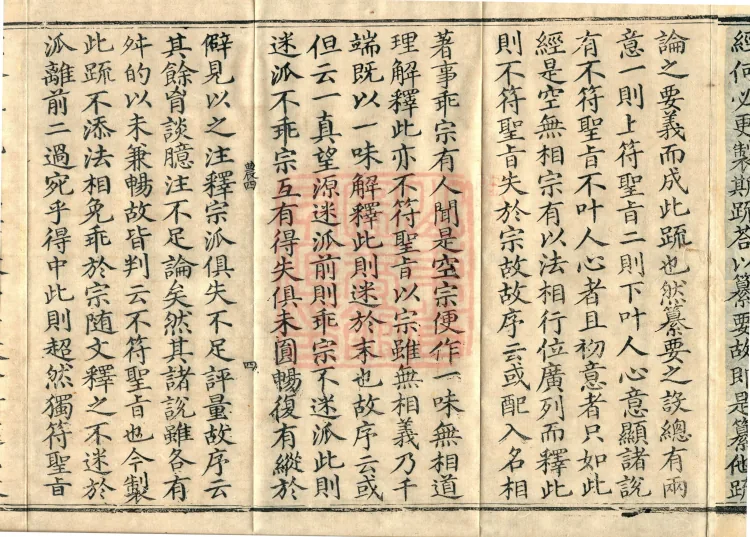 經何必更製斯䟽荅以纂要故則是纂他䟽
論之要義而成此䟽也然纂要之設總有兩
意一則上符聖旨二則下叶人心意顯諸說
有不符聖旨不叶人心者且初意者只如此
經是空無相宗有以法相行位廣列而釋此
則不符聖旨失於宗故故序云或配入名相
著事乖宗有人聞是空宗便作一味無相道
理解釋此亦不符聖旨以宗雖無相義乃千
端既以一味解釋此則迷於末也故序云或
但云一真望源迷派前則乖宗不迷派此則
迷派不乖宗互有得失俱未圓暢復有縱於
農四
四
僻見以之注釋宗派俱失不足評量故序云
其餘胷談臆注不足論矣然其諸說雖各有
舛的以未兼暢故皆判云不符聖旨也今製
此䟽不添法相免乖於宗隨文釋之不迷於
派離前二過宛乎得中此則超然獨符聖旨